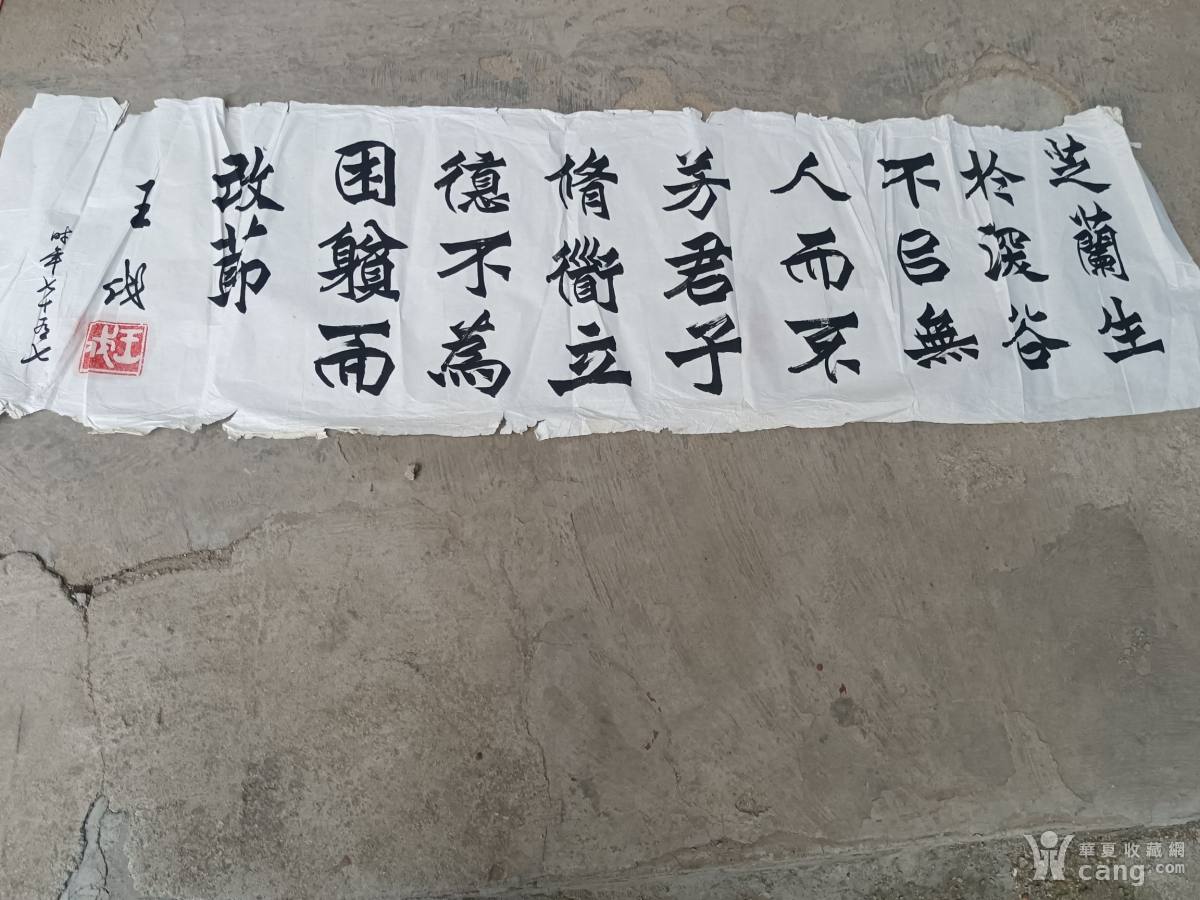 芝蘭生
扵深谷
不㠯無
人而不
芳君子
脩衟立
德不為
困竆而
改節
王
時年七十有七
華夏收藏網
cang.com